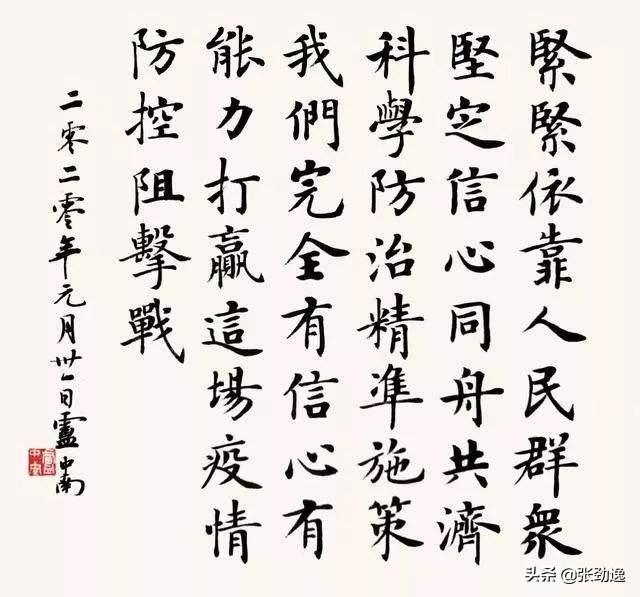 緊緊依靠人民群衆
堅定信心同舟共濟
科學防治精準施策
我們完全有信心有
能力打贏這場疫情
防控阻擊戰
二零二零年元月卅一日盧中南
头条 @张劲逸